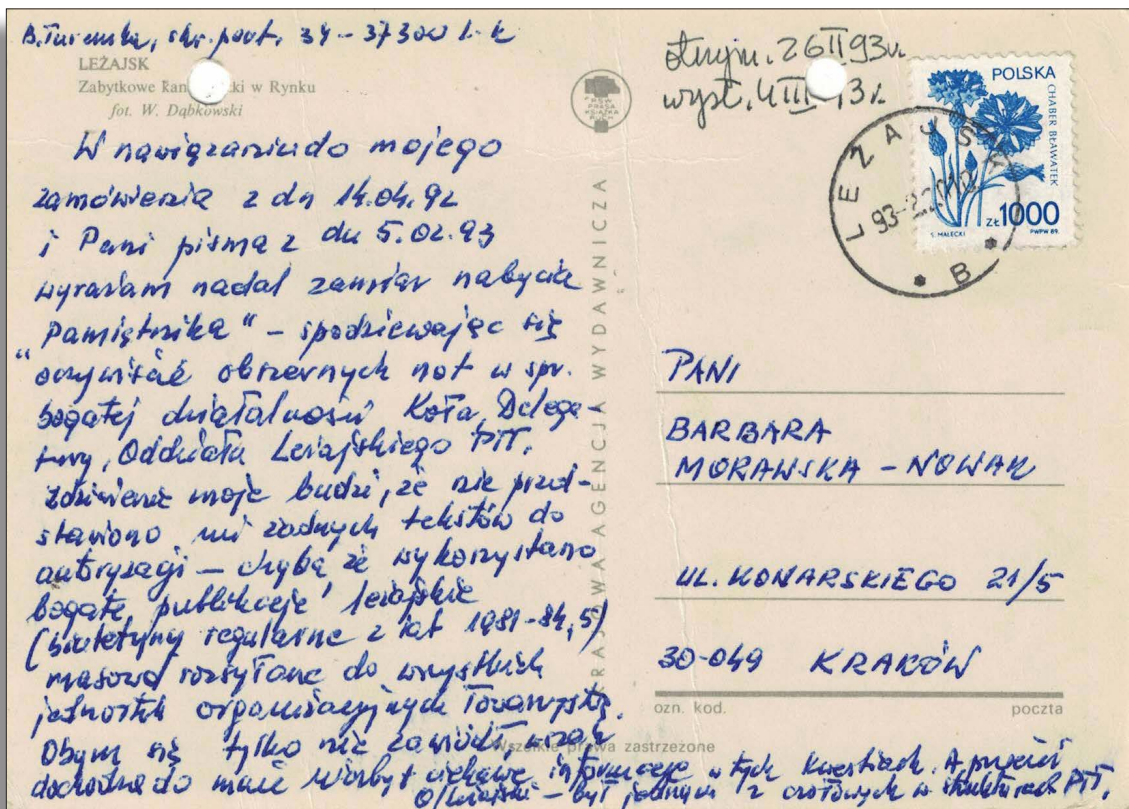 B. Turemka, skr. poczt. 34 - 37300 L-k
LEŻAJSK
Zabytkowe ki w Rynku
fot. W. Dąbkowski
W nawiązaniu do mojego
zamówienia z dn 14.04.92
i Pani pisma z dn 5.02.93
wyrażam nadal zamiar nabycia
"Pamiętnika" – spodziewając się
oczywiście obszernych not w spr.
bogatej działalności Koła, Delega-
tury, Oddziału Leżajskiego PTT.
Zdziwienie moje budzi, że nie przed-
stawiono mi żadnych tekstów do
autoryzacji – chyba że wykorzystano
bogate publikacje leżajskie
(biuletyny regularne z lat 1981-84,5)
masowo rozsyłane do wszystkich
jednostek organizacyjnych Towarzystwa.
Obym się tylko nie zawiódł, wszak
dochodzą do mnie niezbyt ciekawe informacje w tych kwestiach. A przecież
O/Leżajski – był jednym z czołowych w strukturach PTT.
KRAJOWA AGENCJA WYDAWNICZA
Wszelkie prawa zastrzeżone
RSW
PRASA
KSIĄŻKA
RUCH
otrzym. 26 II 93 r.
wysł. 4 III 93 r.
POLSKA
CHABER BŁAWATEK
ZŁ 1000
S. MAŁECKI
PWPW 89.
LEŻAJSK
93-2.2
* B *
PANI
BARBARA
MORAWSKA - NOWAK
UL. KONARSKIEGO 21/5
30-049 KRAKÓW
ozn. kod. poczta